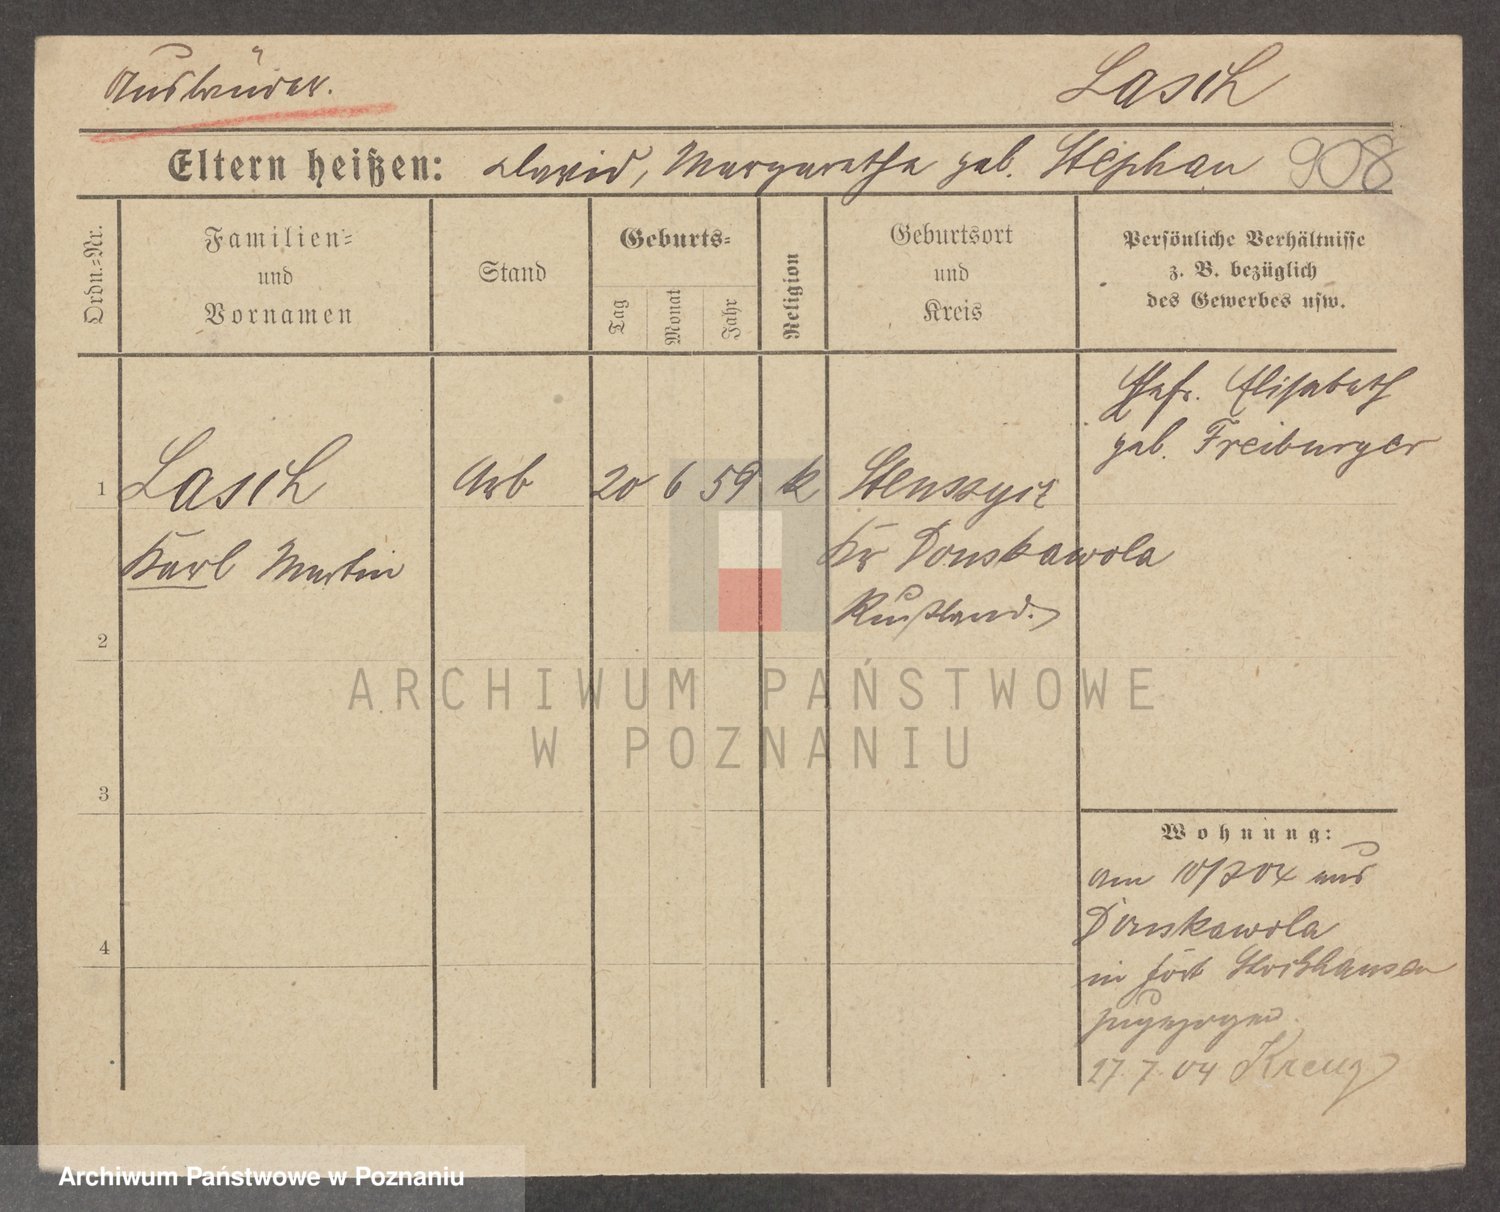 Lasch
Eltern heißen: David, Margarethe geb. Stephan 908
Ordn.=Nr.
Familien=
und
Vornamen
Stand
Geburts=
Tag
Monat
Jahr
Religion
Geburtsort
und
Kreis
Persönliche Verhältnisse
z. B. bezüglich
des Gewerbes usw.
Ehefr. Elisabeth
geb. Freiburger
1 Lasch Arb 20 6 59 k
Karl Martin
Kr Donskawola
Rußland.
2
ARCHIWUM PAŃSTWOWE
W POZNANIU
3
4
Wohnung:
am 10/7 04 aus
Donskawola
in
zugezogen.
27 7 04 Kreuz
Archiwum Państwowe w Poznaniu